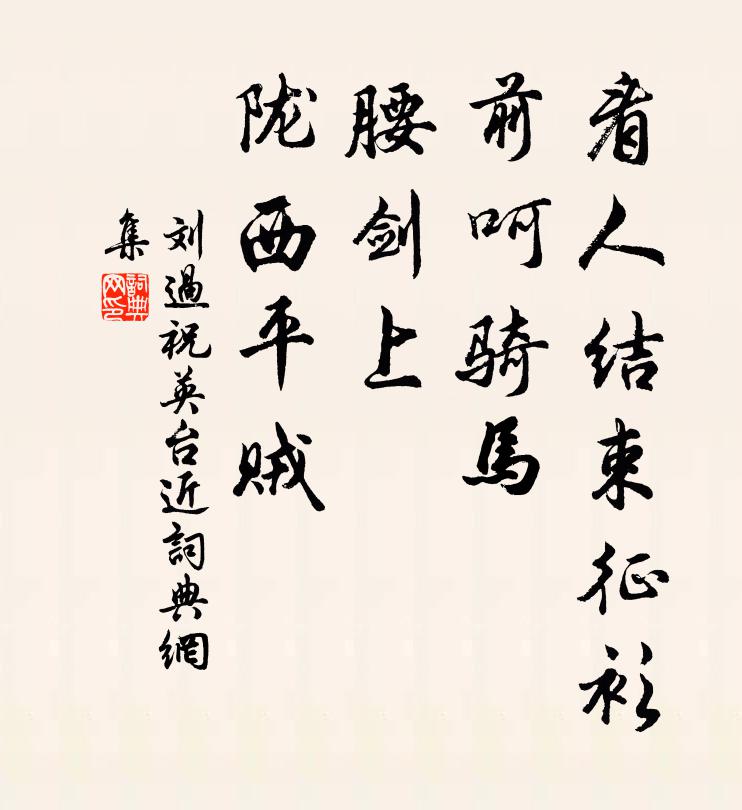 看人结束征衫
前呵骑馬
腰剑上
陇西平贼
刘過祝英台近詞典網
集
詞典
网印